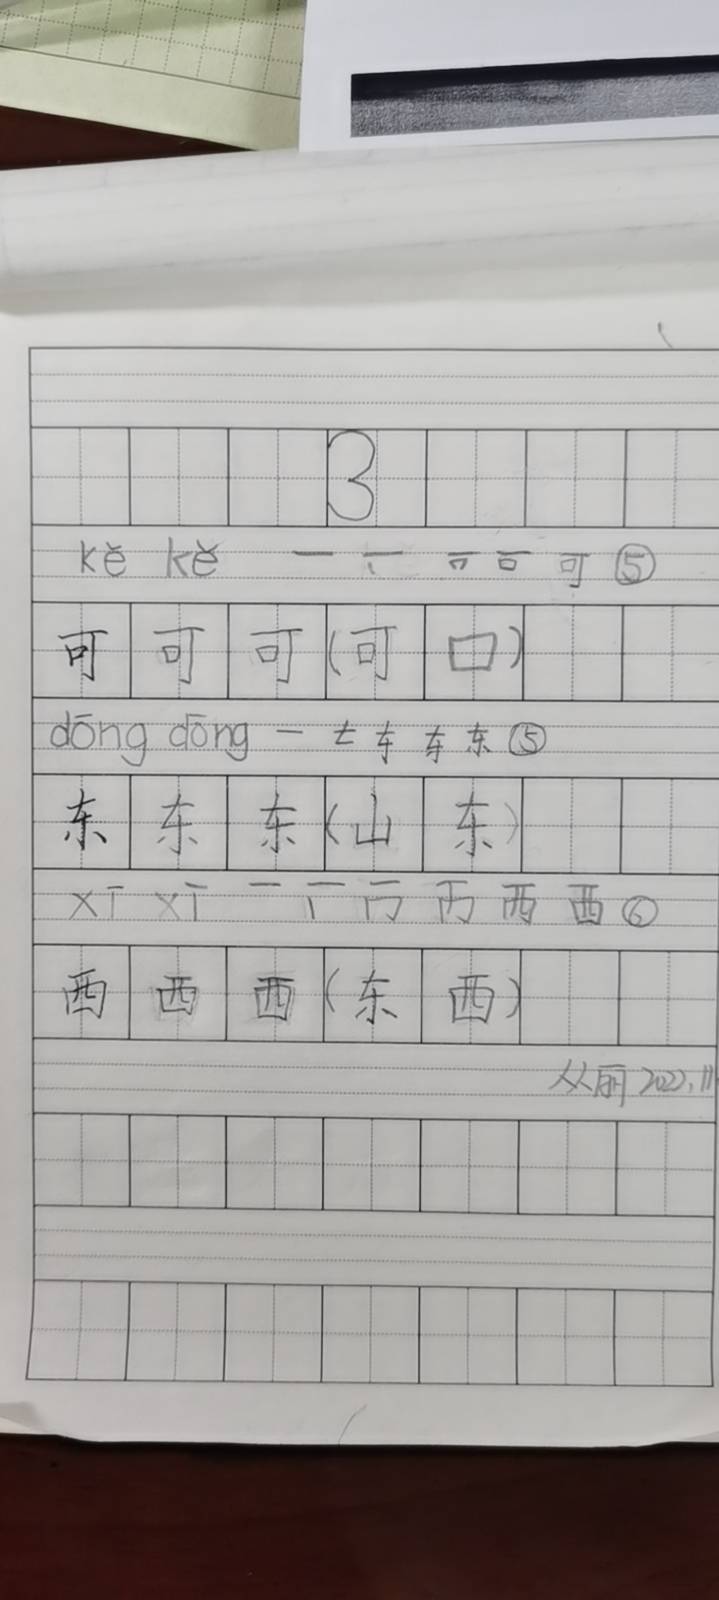 3
kě kě 一 丆 可 ⑤
可 可 可 (可 口)
dōng dōng 一 𠂇 东 ⑤
东 东 东 (山 东)
xī xī 一 丅 丙 西 ⑥
西 西 西 (东 西)
丛丽 2022.11